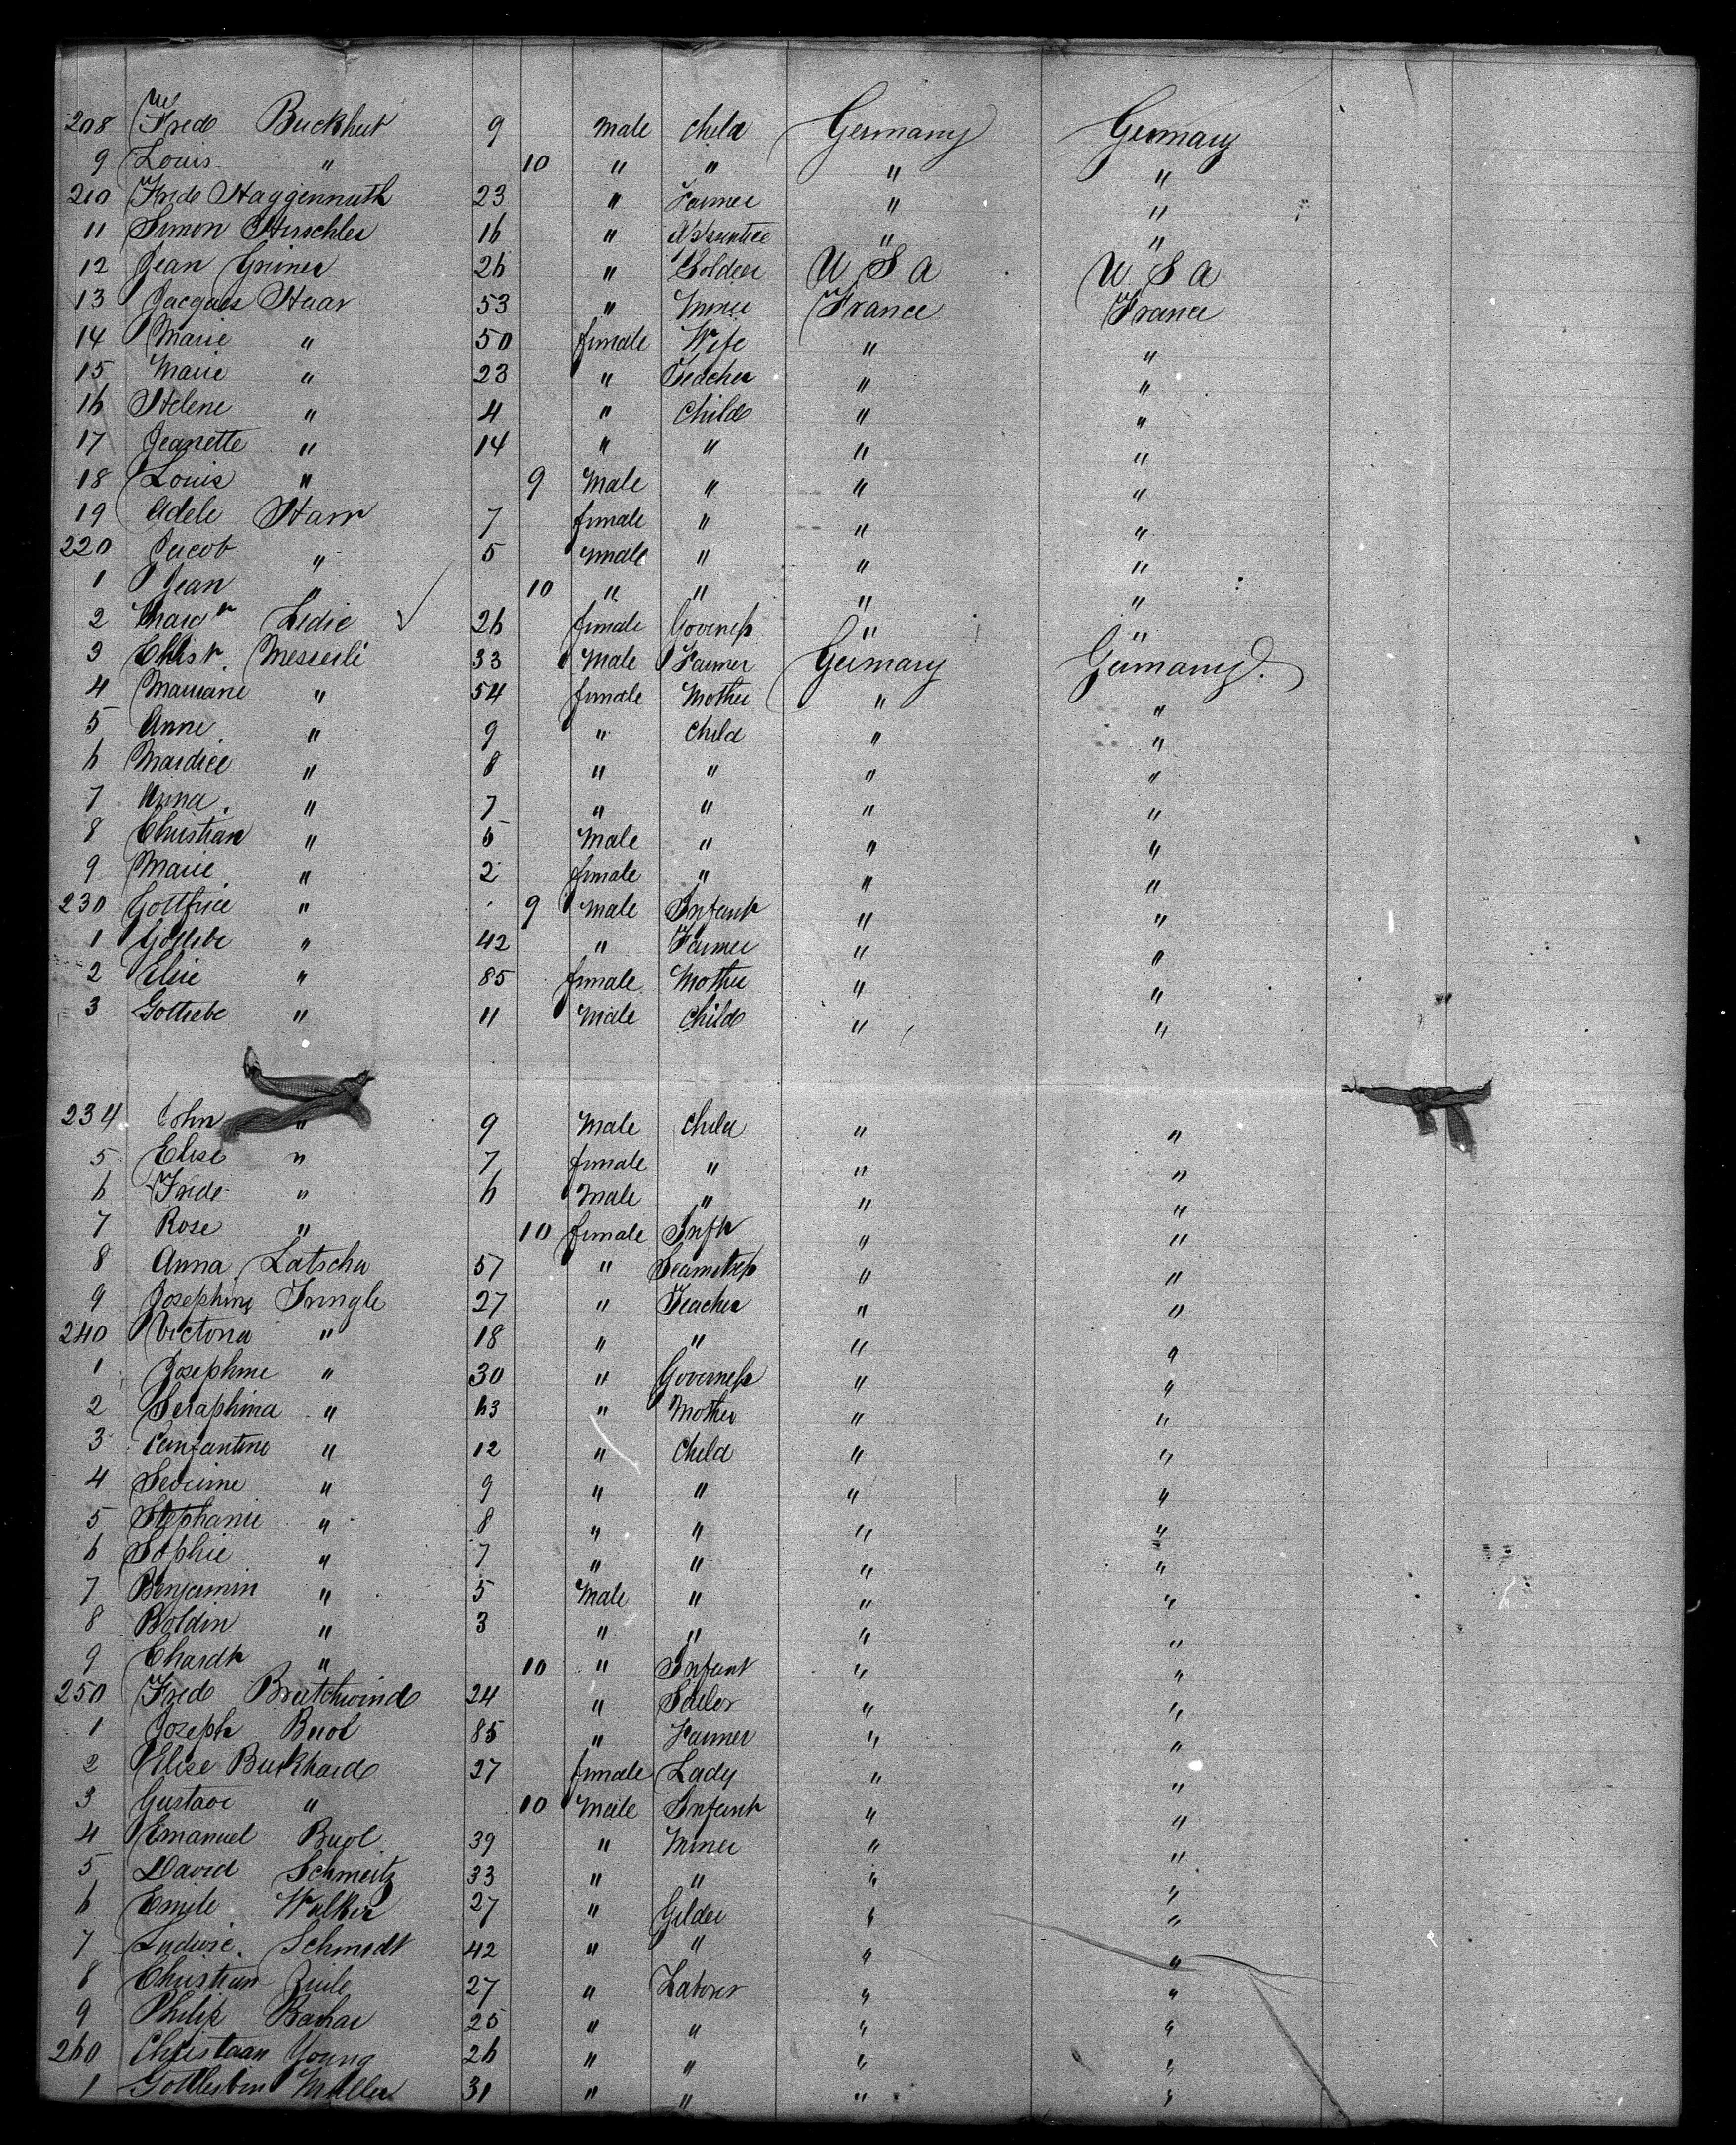 208 Fred Buckhut 9 male child Germany Germany
9 Louis " 10 " " " "
210 Fred Haggenmuth 23 " Farmer " "
11 Simon Hirschler 16 " Apprentice " "
12 Jean Griner 26 " Soldier U S A U S A
13 Jacques Haar 53 " Miner France France
14 Marie " 50 female Wife " "
15 Marie " 23 " Teacher " "
16 Helene " 4 " child " "
17 Jeanette " 14 " " " "
18 Louis " 9 Male " " "
19 Adele Harr 7 female " " "
220 Jacob " 5 male " " "
1 Jean " 10 " " " "
2 Ledie 26 female Governess " "
3 Christ. Messerli 33 Male Farmer Germany Germany
4 Mariane " 54 female Mother " "
5 Anne " 9 " child " "
6 " 8 " " " "
7 Anna " 7 " " " "
8 Christian " 5 Male " " "
9 Marie " 2 female " " "
230 Gottfried " 9 male Infant " "
1 Gottlebe " 42 " Farmer " "
2 Elise " 85 female Mother " "
3 Gottlebe " 11 Male child " "
234 John " 9 Male child " "
5 Elise " 7 female " " "
6 Fred " 6 Male " " "
7 Rose " 10 female Inft " "
8 Anna Latscha 57 " Seamstress " "
9 Josephine Tringle 27 " Teacher " "
240 Victoria " 18 " " " "
1 Josephine " 30 " Governess " "
2 Seraphina " 63 " Mother " "
3 " 12 " child " "
4 Severine " 9 " " " "
5 Stephanie " 8 " " " "
6 Sophie " 7 " " " "
7 Benjamin " 5 Male " " "
8 Boldin " 3 " " " "
9 Chardt " 10 " Infant " "
250 Fred Bratchwind 24 " Sailor " "
1 Joseph Buol 85 " Farmer " "
2 Elise Burkhard 27 female Lady " "
3 Gustave " 10 Male Infant " "
4 Emanuel Buol 39 " Miner " "
5 David Schmeitz 33 " " " "
6 Emile Walker 27 " Gilder " "
7 Ludwic. Schmidt 42 " " " "
8 Christian Zuile 27 " Laborer " "
9 Philip Bachar 25 " " " "
260 Christaan Young 26 " " " "
1 Gottlesbin Muller 31 " " " "